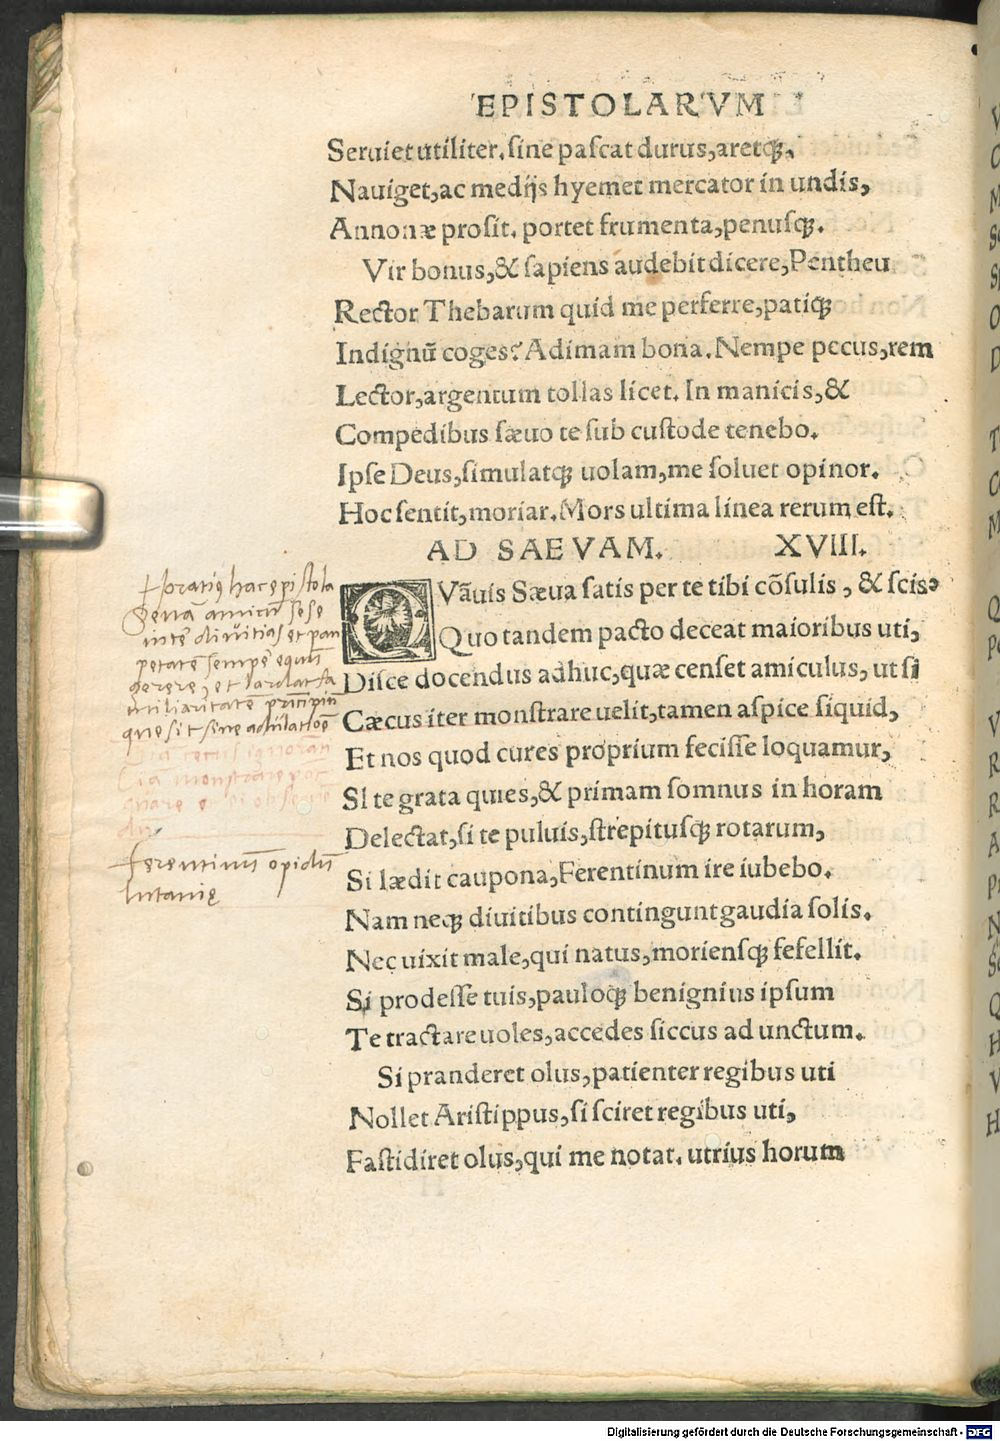 EPISTOLARVM
Seruiet utiliter, ſine paſcat durus, aretq́;,
Nauiget, ac medijs hyemet mercator in undis,
Annonæ proſit. portet frumenta, penuſq́;.
Vir bonus, & ſapiens audebit dicere, Pentheu
Rector Thebarum quid me perferre, patiq́;
Indignū coges? Adimam bona. Nempe pecus, rem
Lector, argentum tollas licet. In manicis, &
Compedibus ſæuo te ſub cuſtode tenebo.
Ipſe Deus, ſimulatq́; uolam, me ſoluet opinor.
Hoc ſentit, moriar. Mors ultima linea rerum eſt.
AD SAEVAM. XVIII.
QVāuis Sæua ſatis per te tibi cōſulis, & ſcis
Quo tandem pacto deceat maioribus uti,
Diſce docendus adhuc, quæ cenſet amiculus, ut ſi
Cæcus iter monſtrare uelit, tamen aſpice ſiquid,
Et nos quod cures proprium feciſſe loquamur,
SI te grata quies, & primam ſomnus in horam
Delectat, ſi te puluis, ſtrepituſq́; rotarum,
Si lædit caupona, Ferentinum ire iubebo.
Nam neq́; diuitibus contingunt gaudia ſolis.
Nec uixit male, qui natus, morienſq́; fefellit.
Si prodeſſe tuis, pauloq́; benignius ipſum
Te tractare uoles, accedes ſiccus ad unctum.
Si pranderet olus, patienter regibus uti
Nollet Ariſtippus, ſi ſciret regibus uti,
Faſtidiret olus, qui me notat. utrius horum
Horatiꝰ hac epiſtola
Seuā amicū ſe ſe
inte diuitias et pau
petatē ſemp equū
gerere, et laudat fa
miliaritatē principū
que ſit ſine adulatiōe
monſtrare
Ferentinū opidū
lutanię
Digitalisierung gefördert durch die Deutsche Forschungsgemeinschaft - DFG